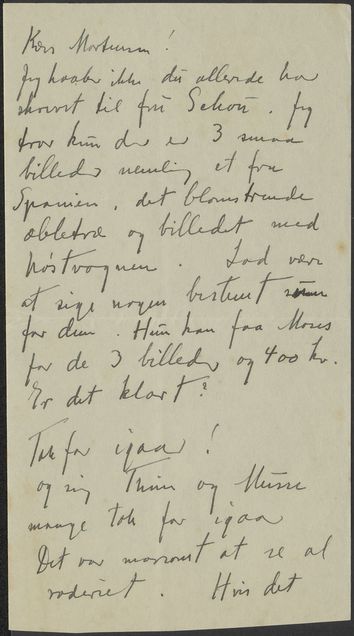 Kære Mortensen!
Jeg haaber ikke du allerede har
skrevet til fru Schou. Jeg
tror kun der er 3 smaa
billeder nemlig et fra
Spanien, det blomstrende
æbletræ og billedet med
høstvognen. Lad være
at sige nogen bestemt sum
for dem. Hun kan faa Moses
for de 3 billeder og 400 kr.
Er det klart?
Tak for igaar!
og sig Thim og Musse
mange tak for igaar
Det var morsomt at se al
raderiet. Hvis det